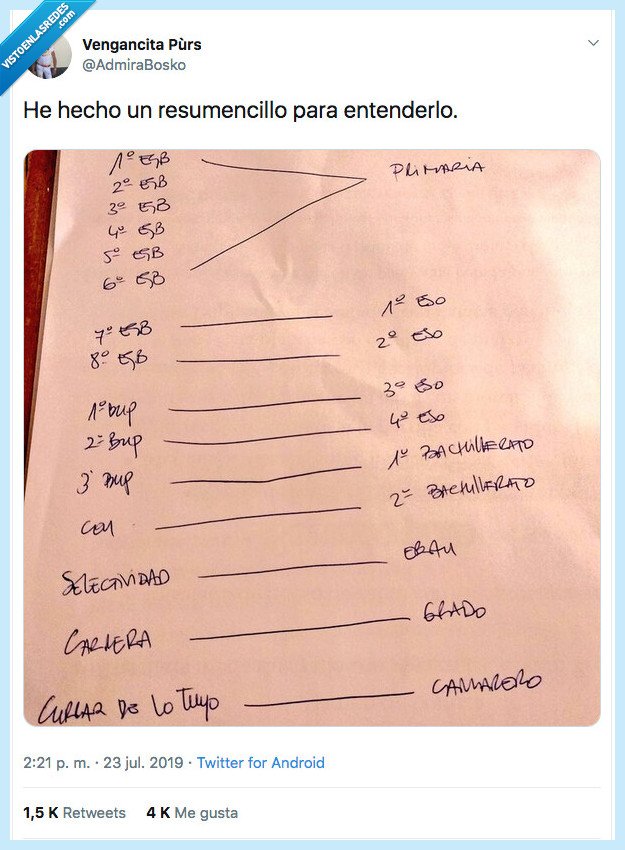 VISTOENLASREDES
.com
Vengancita Pùrs
@AdmiraBosko
He hecho un resumencillo para entenderlo.
1º EGB
PRIMARIA
2º EGB
3º EGB
4º EGB
5º EGB
6º EGB
7º EGB 1º ESO
8º EGB 2º ESO
1º BUP 3º ESO
2º BUP 4º ESO
3º BUP 1º BACHILLERATO
COU 2º BACHILLERATO
SELECTIVIDAD EBAU
CARRERA GRADO
CURRAR DE LO TUYO CAMARERO
2:21 p. m. · 23 jul. 2019 · Twitter for Android
1,5 K Retweets 4 K Me gusta